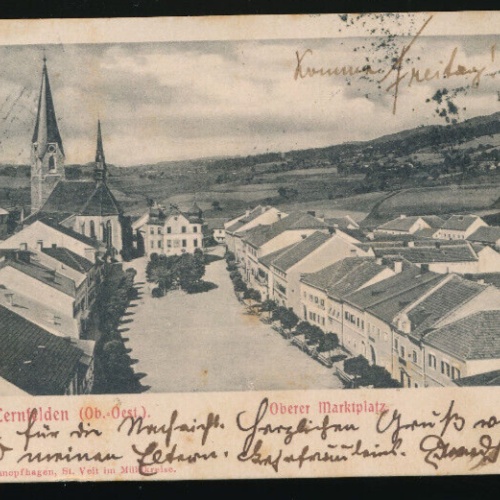 Komme Freitag!
Lernfelden (Ob.-Oest.). Oberer Marktplatz.
für die Nachricht. Herzlichen Gruß
meinen Eltern.
nopfhagen, St. Veit im Mühlkreise.